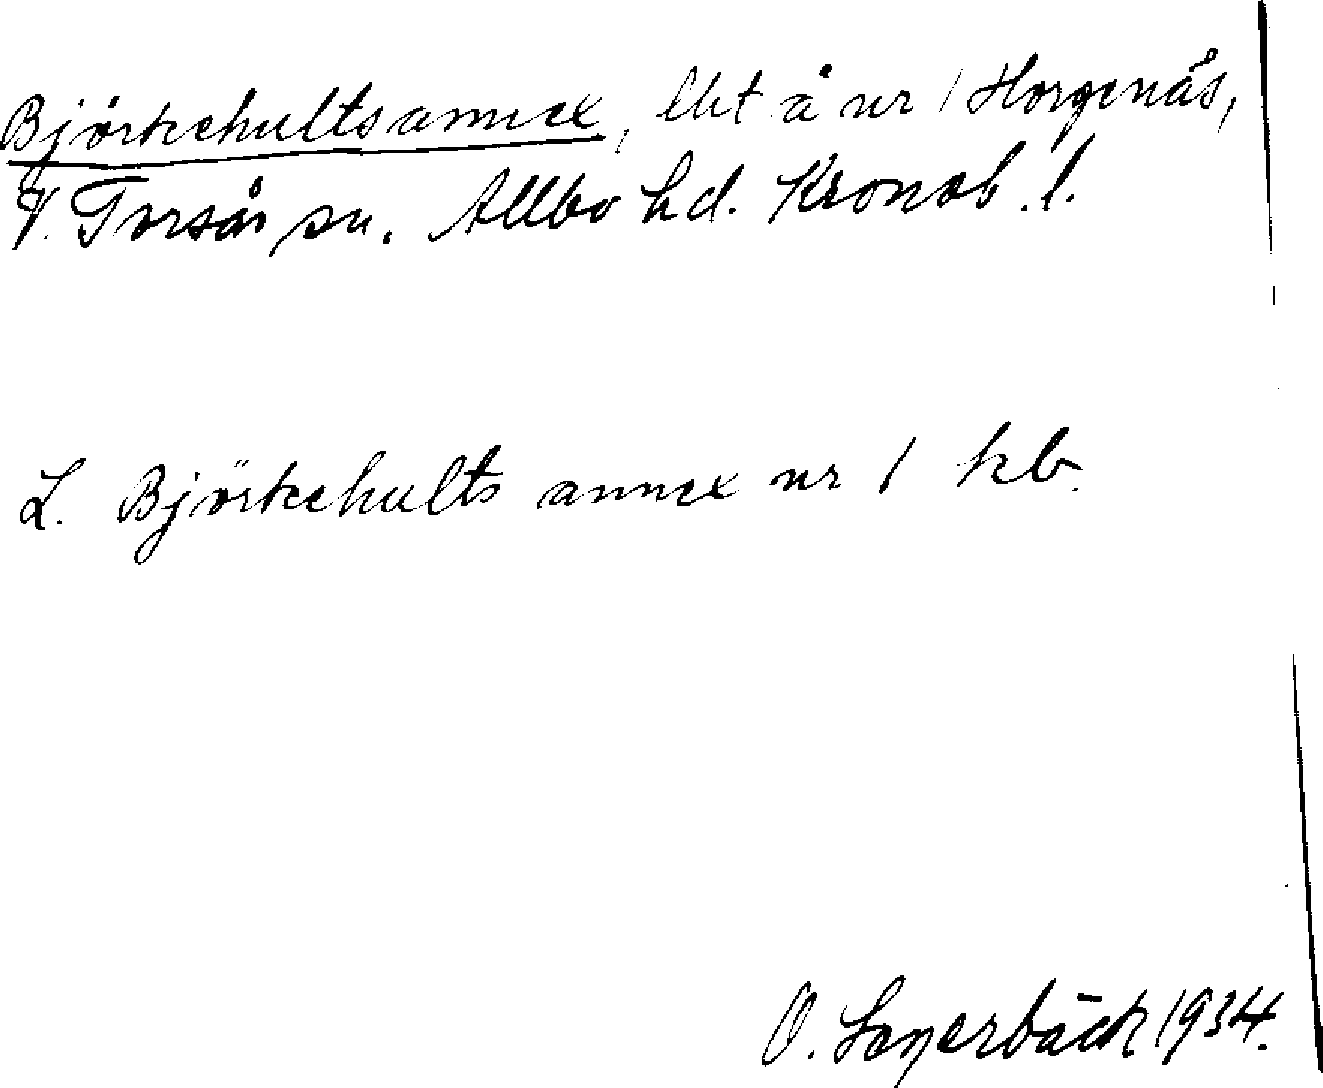 Björkehultsannex, lht å nr 1 Horgenäs,
V. Torsås sn. Allbo hd. Kronob. l.
L. Björkehults annex nr 1 kb.
O. Lagerbäck 1934.